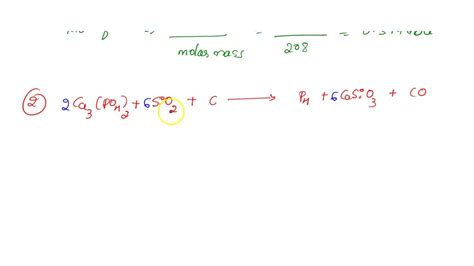 molar mass = 208
② 2Ca₃(PO₄)₂ + 6SiO₂ + C ⟶ P₄ + 6CaSiO₃ + CO